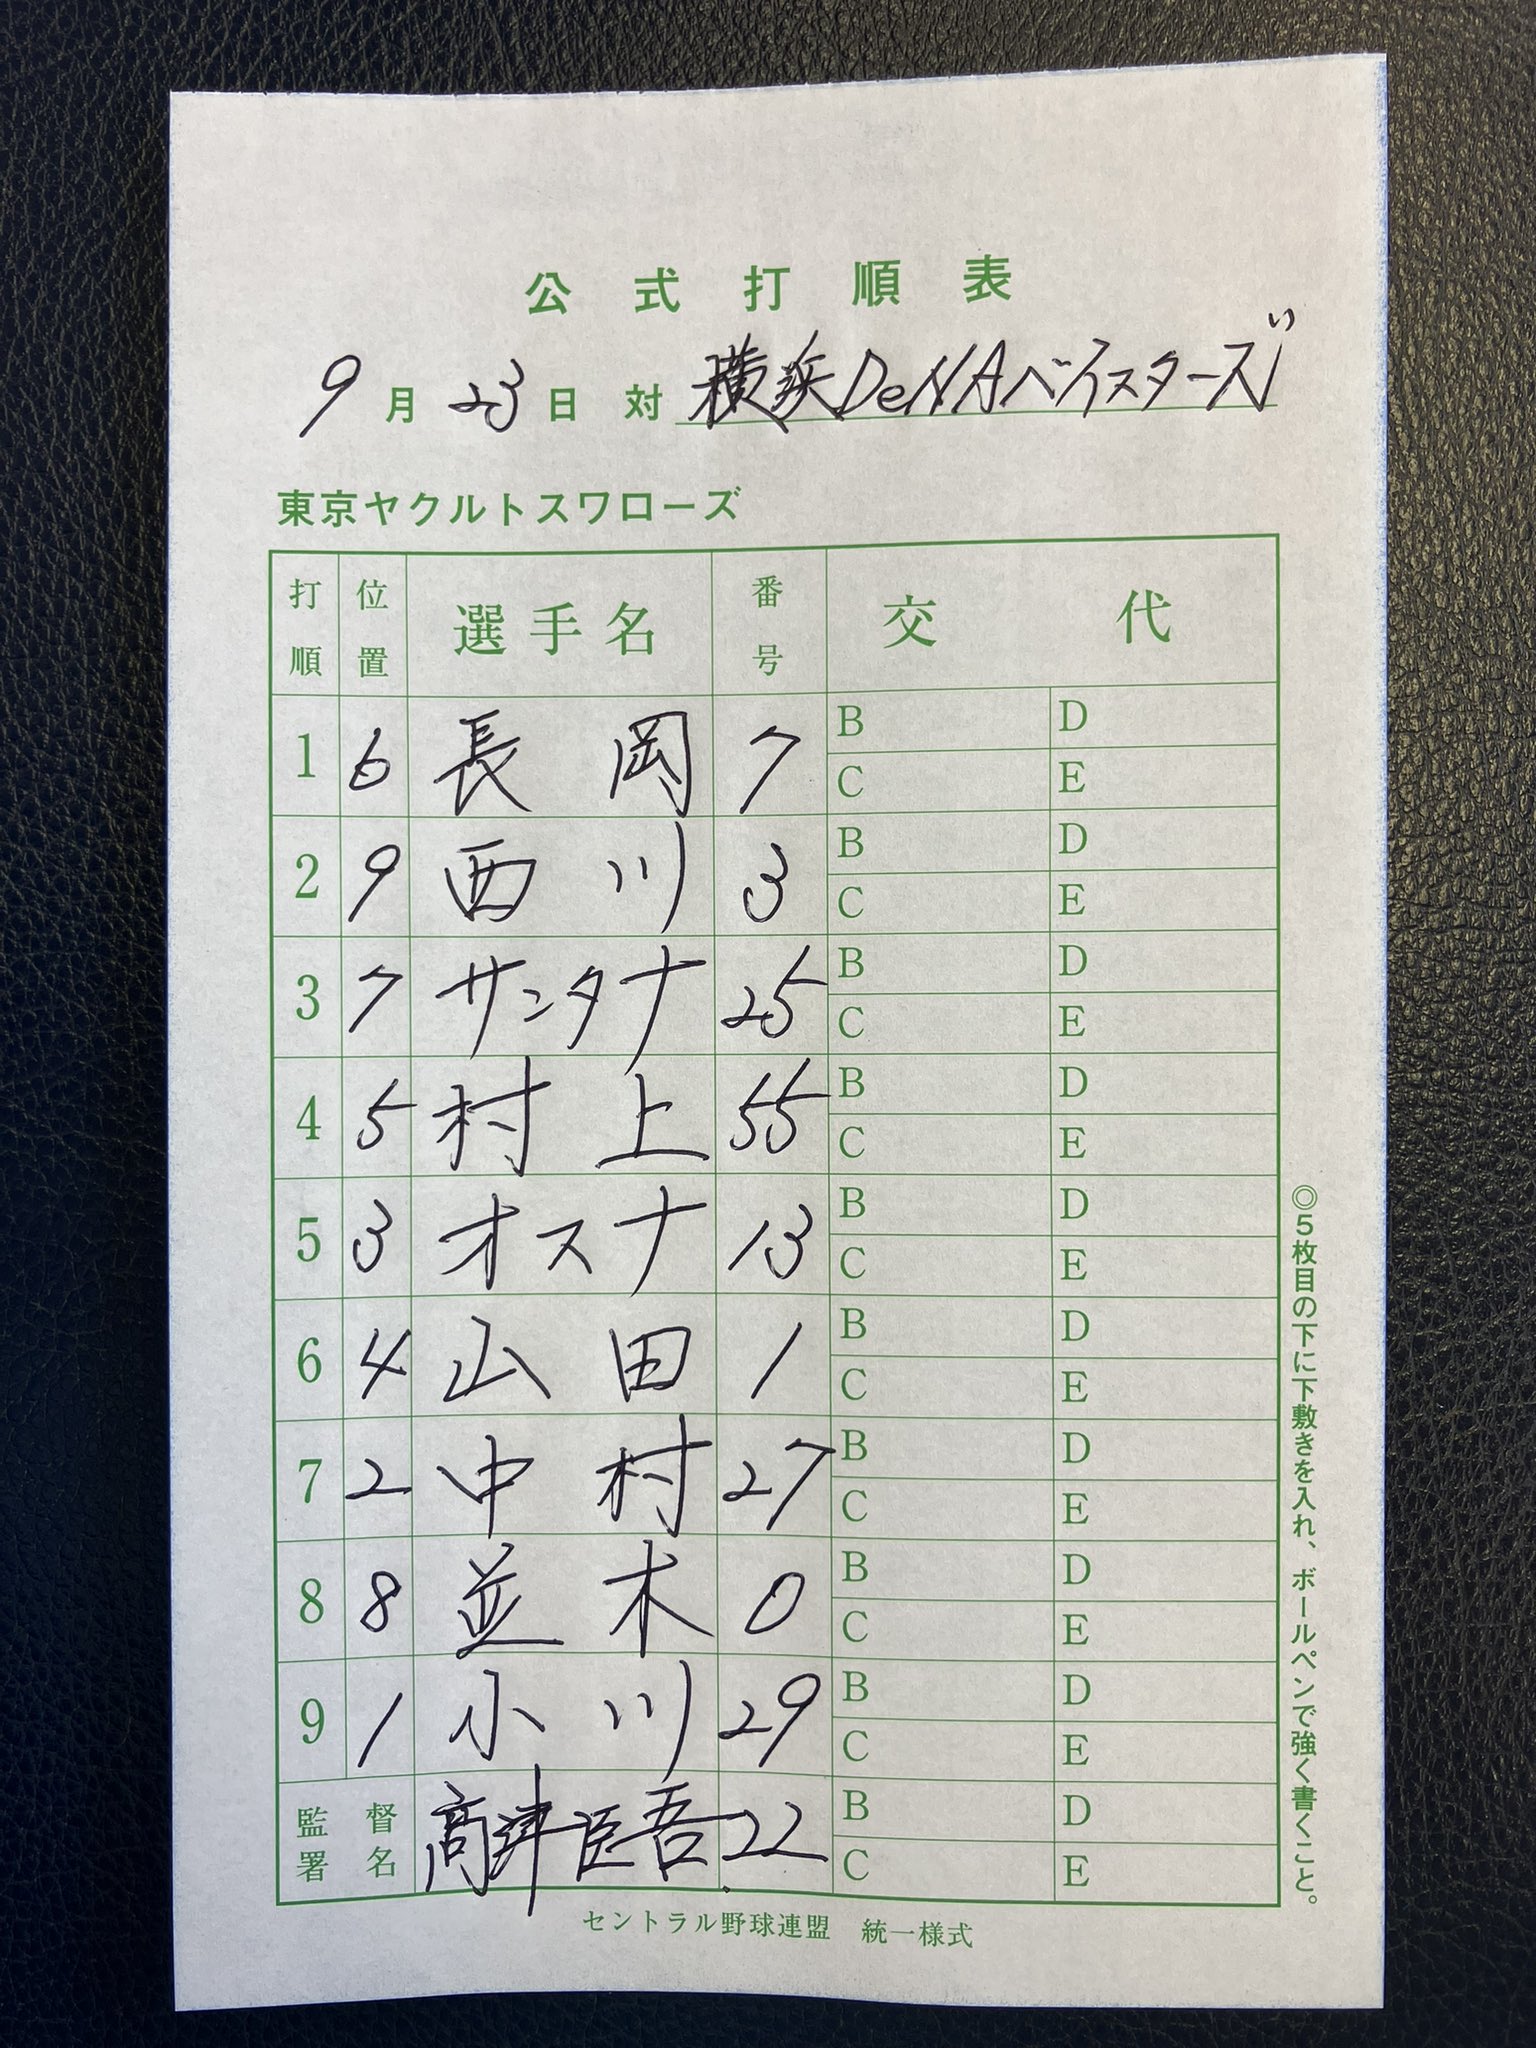 公式打順表
9月23日 対 横浜DeNAベイスターズ
東京ヤクルトスワローズ
打順 位置 選手名 番号 交代
1 6 長岡 7 B D C E
2 9 西川 3 B D C E
3 7 サンタナ 25 B D C E
4 5 村上 55 B D C E
5 3 オスナ 13 B D C E
6 4 山田 1 B D C E
7 2 中村 27 B D C E
8 8 並木 0 B D C E
9 1 小川 29 B D C E
監督署名 高津臣吾 22 B D C E
セントラル野球連盟 統一様式
◎5枚目の下に下敷きを入れ、ボールペンで強く書くこと。